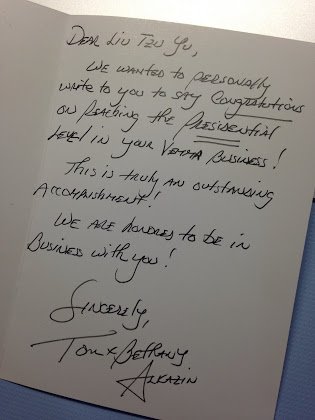 Dear Liu Tzu Yu,
We wanted to personally
write to you to say Congratulations
on reaching the Presidential
level in your Vemma Business!
This is truly an outstanding
accomplishment!
We are honored to be in
Business with you!
Sincerely,
Tom & Bethany
Alkazin